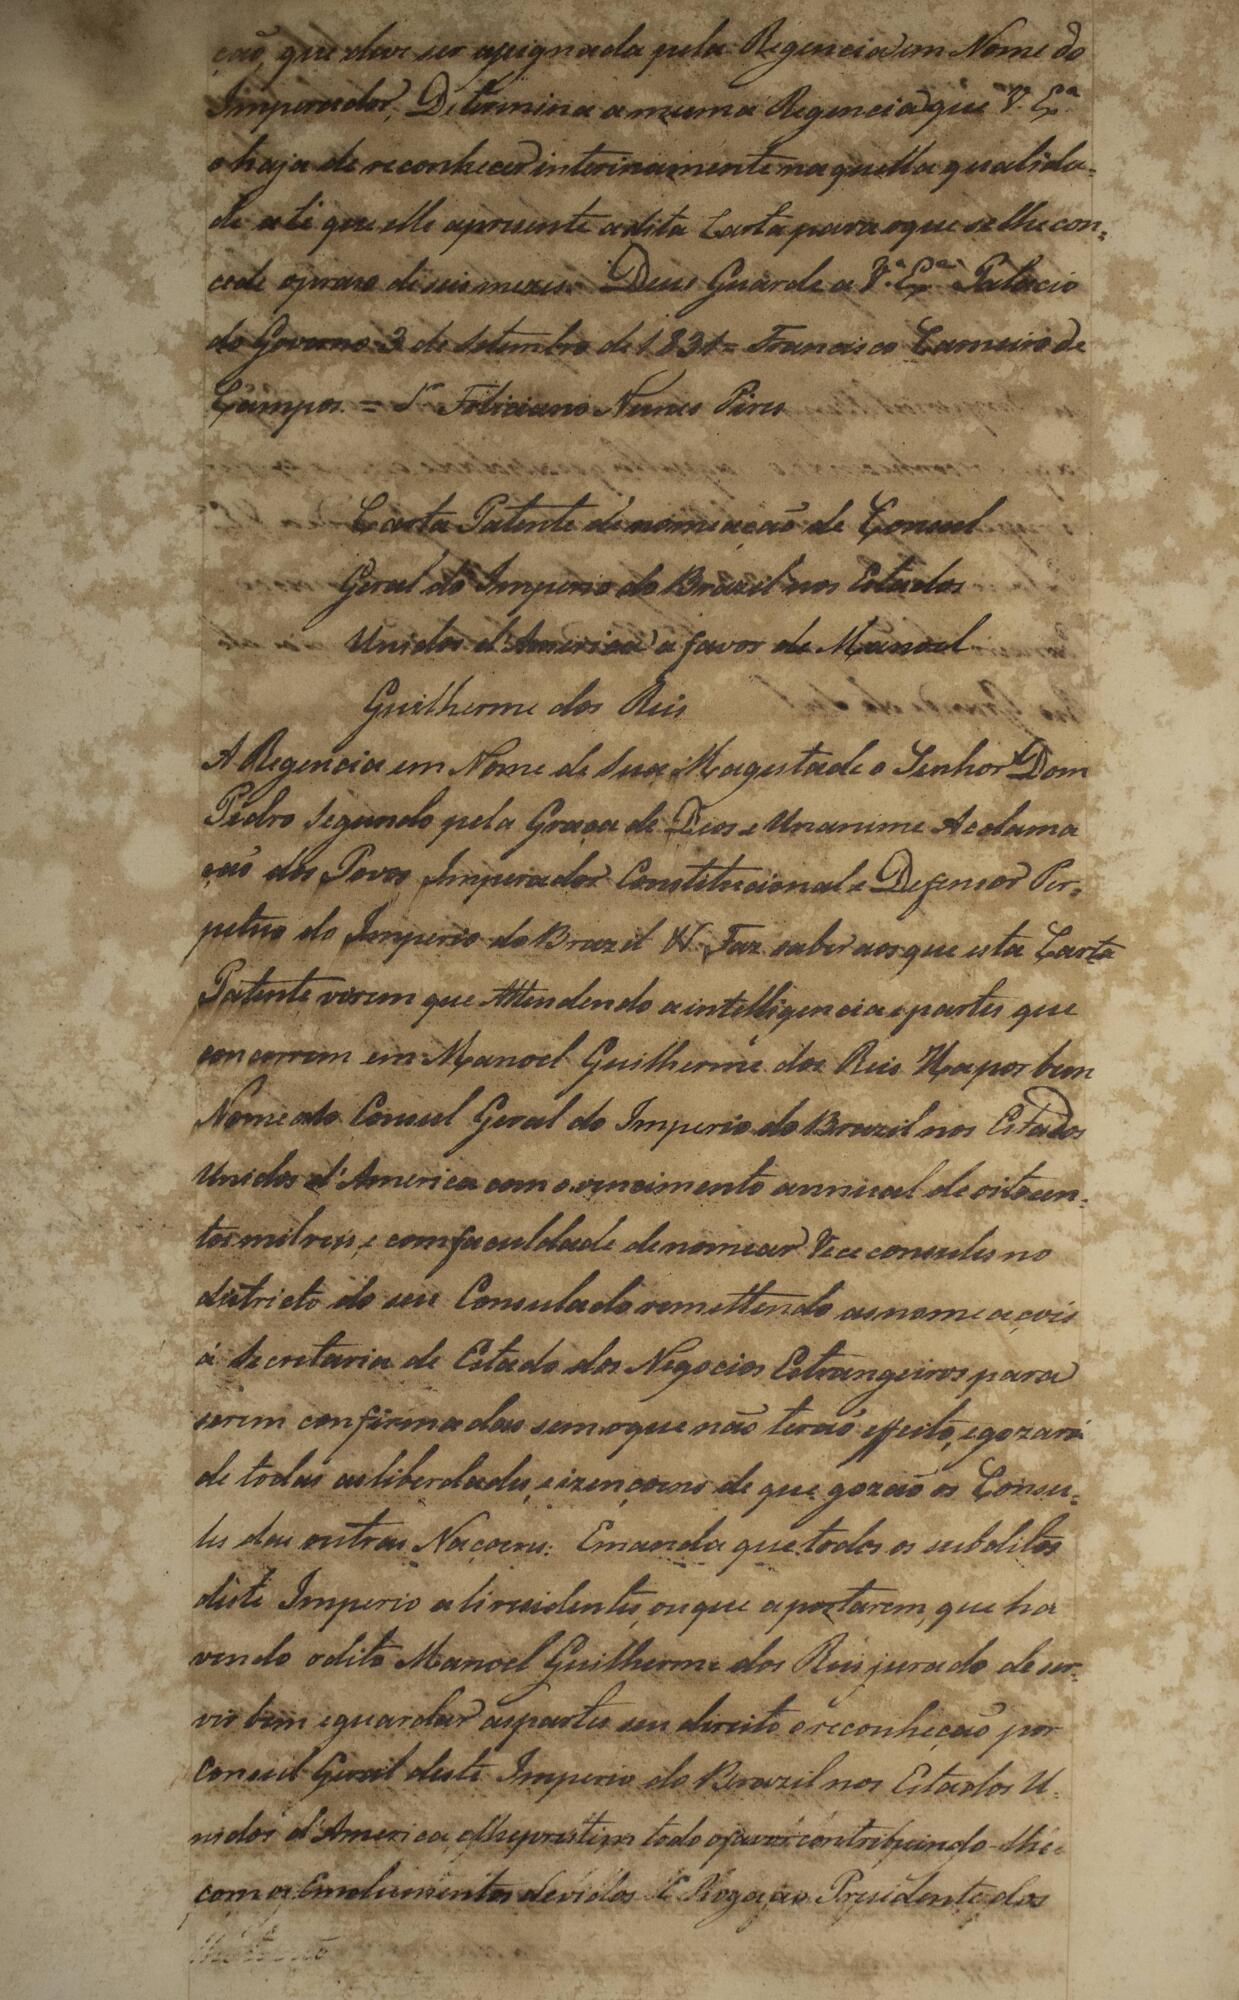 ção, que deve ser assignada pela Regencia em Nome do
Imperador, Determina a mesma Regencia que V. Exª
o haja de reconhecer interinamente naquella qualida=
de até que elle apresente a dita Carta para o que se lhe con=
cede o praso de seis mezes. Deus Guarde a V. Exª Palacio
do Governo 3 de Setembro de 1831 = Francisco Carneiro de
Campos. = Sr Feliciano Nunes Pires
Carta Patente de nomeação de Consul
Geral do Imperio do Brazil nos Estados
Unidos d'America a favor de Manoel
Guilherme dos Reis
A Regencia em Nome de Sua Magestade o Senhor Dom
Pedro Segundo pela Graça de Deos e Unanime Acclama
ção dos Povos Imperador Constitucional e Defensor Per=
petuo do Imperio do Brazil & Faz saber aos que esta Carta
Patente virem que Attendendo a intelligencia e partes que
concorrem em Manoel Guilherme dos Reis Ha por bem
Nomealo Consul Geral do Imperio do Brazil nos Estados
Unidos d'America com o vencimento annual de oitocen=
tos mil reis, e com faculdade de nomear Vice consules no
districto do seu Consulado remettendo as nomeações
á Secretaria de Estado dos Negocios Estrangeiros para
serem confirmadas sem o que não terão effeito, e gozará
de todas as liberdades, e izençoens de que gozão os Consu=
les das outras Naçoens. E manda que todos os subditos
deste Imperio ali residentes, ou que aportarem, que ha
vendo o dito Manoel Guilherme dos Reis jurado de ser=
vir bem e guardar ás partes seu direito o reconheção por
Consul Geral deste Imperio do Brazil nos Estados U=
nidos d'America, e lhe prestem todo o favor contribuindo-lhe
com os Emolumentos devidos. E Roga ao Presidente dos